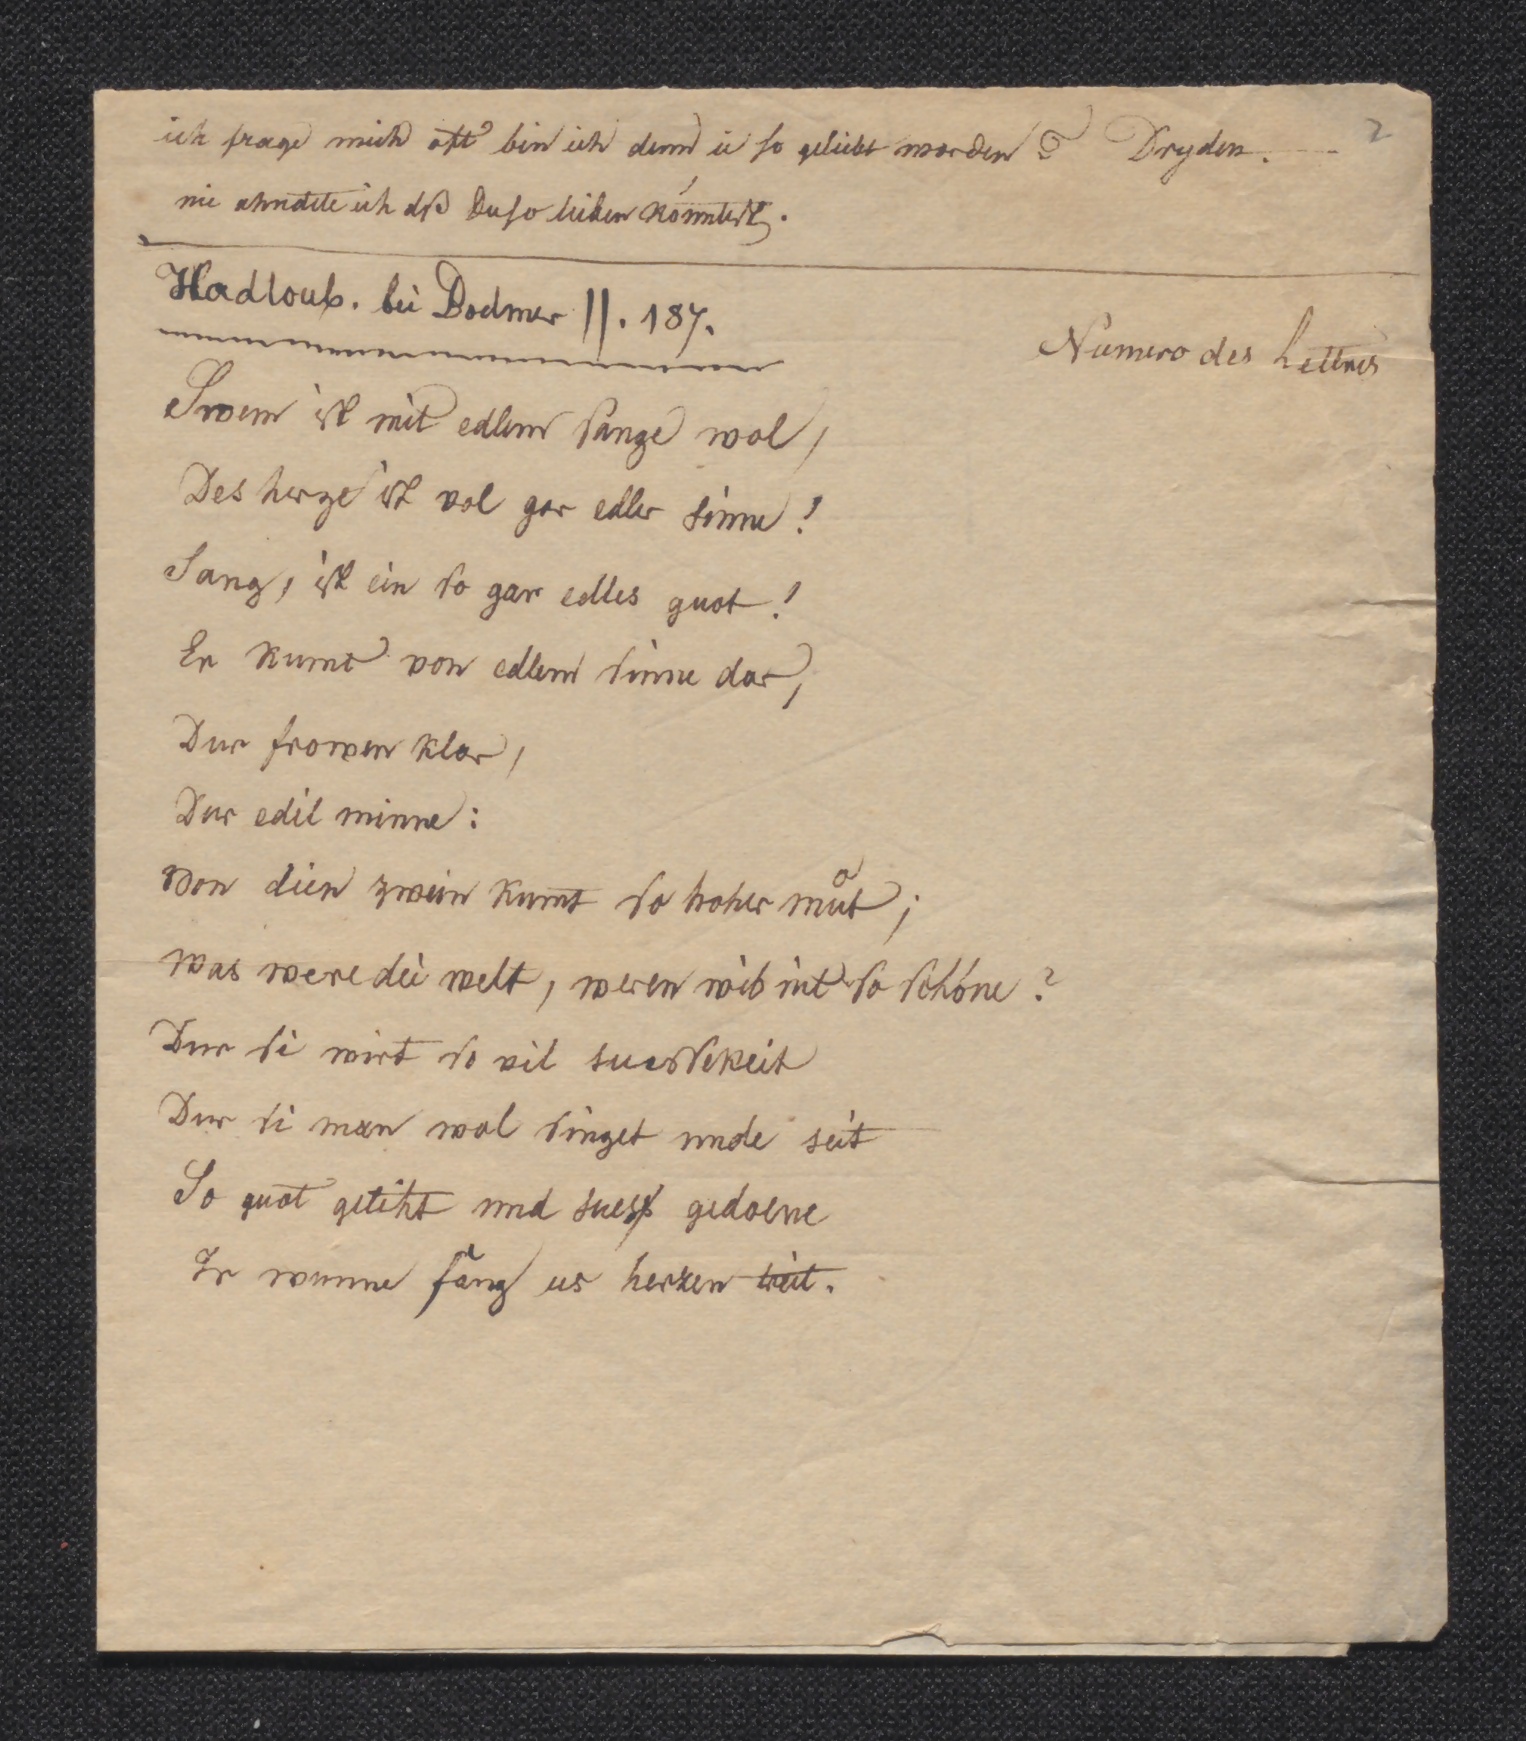 ich frage mich oft bin ich denn je so geliebt worden? Dryden. 2
nie ahndete ich dß Du so lieben könntest.
Hadloub. bei Bodmer II. 187.
Numero des
Swem ist mit edlem sange wol,
Des herze ist vol gar edler sinne!
Sang, ist ein so gar edles guot!
Er kumt von edlem sinne dar,
Dur frowen klar,
Dur edil minne:
von dien zwein kumt so hoher muͦt;
was were die welt, weren wib nit so schöne?
Dur si wirt so vil suessekeit
Dur si man wol singet unde seit
So guot getiht und suess gedoene
Ir wunne sang us herzen treit.